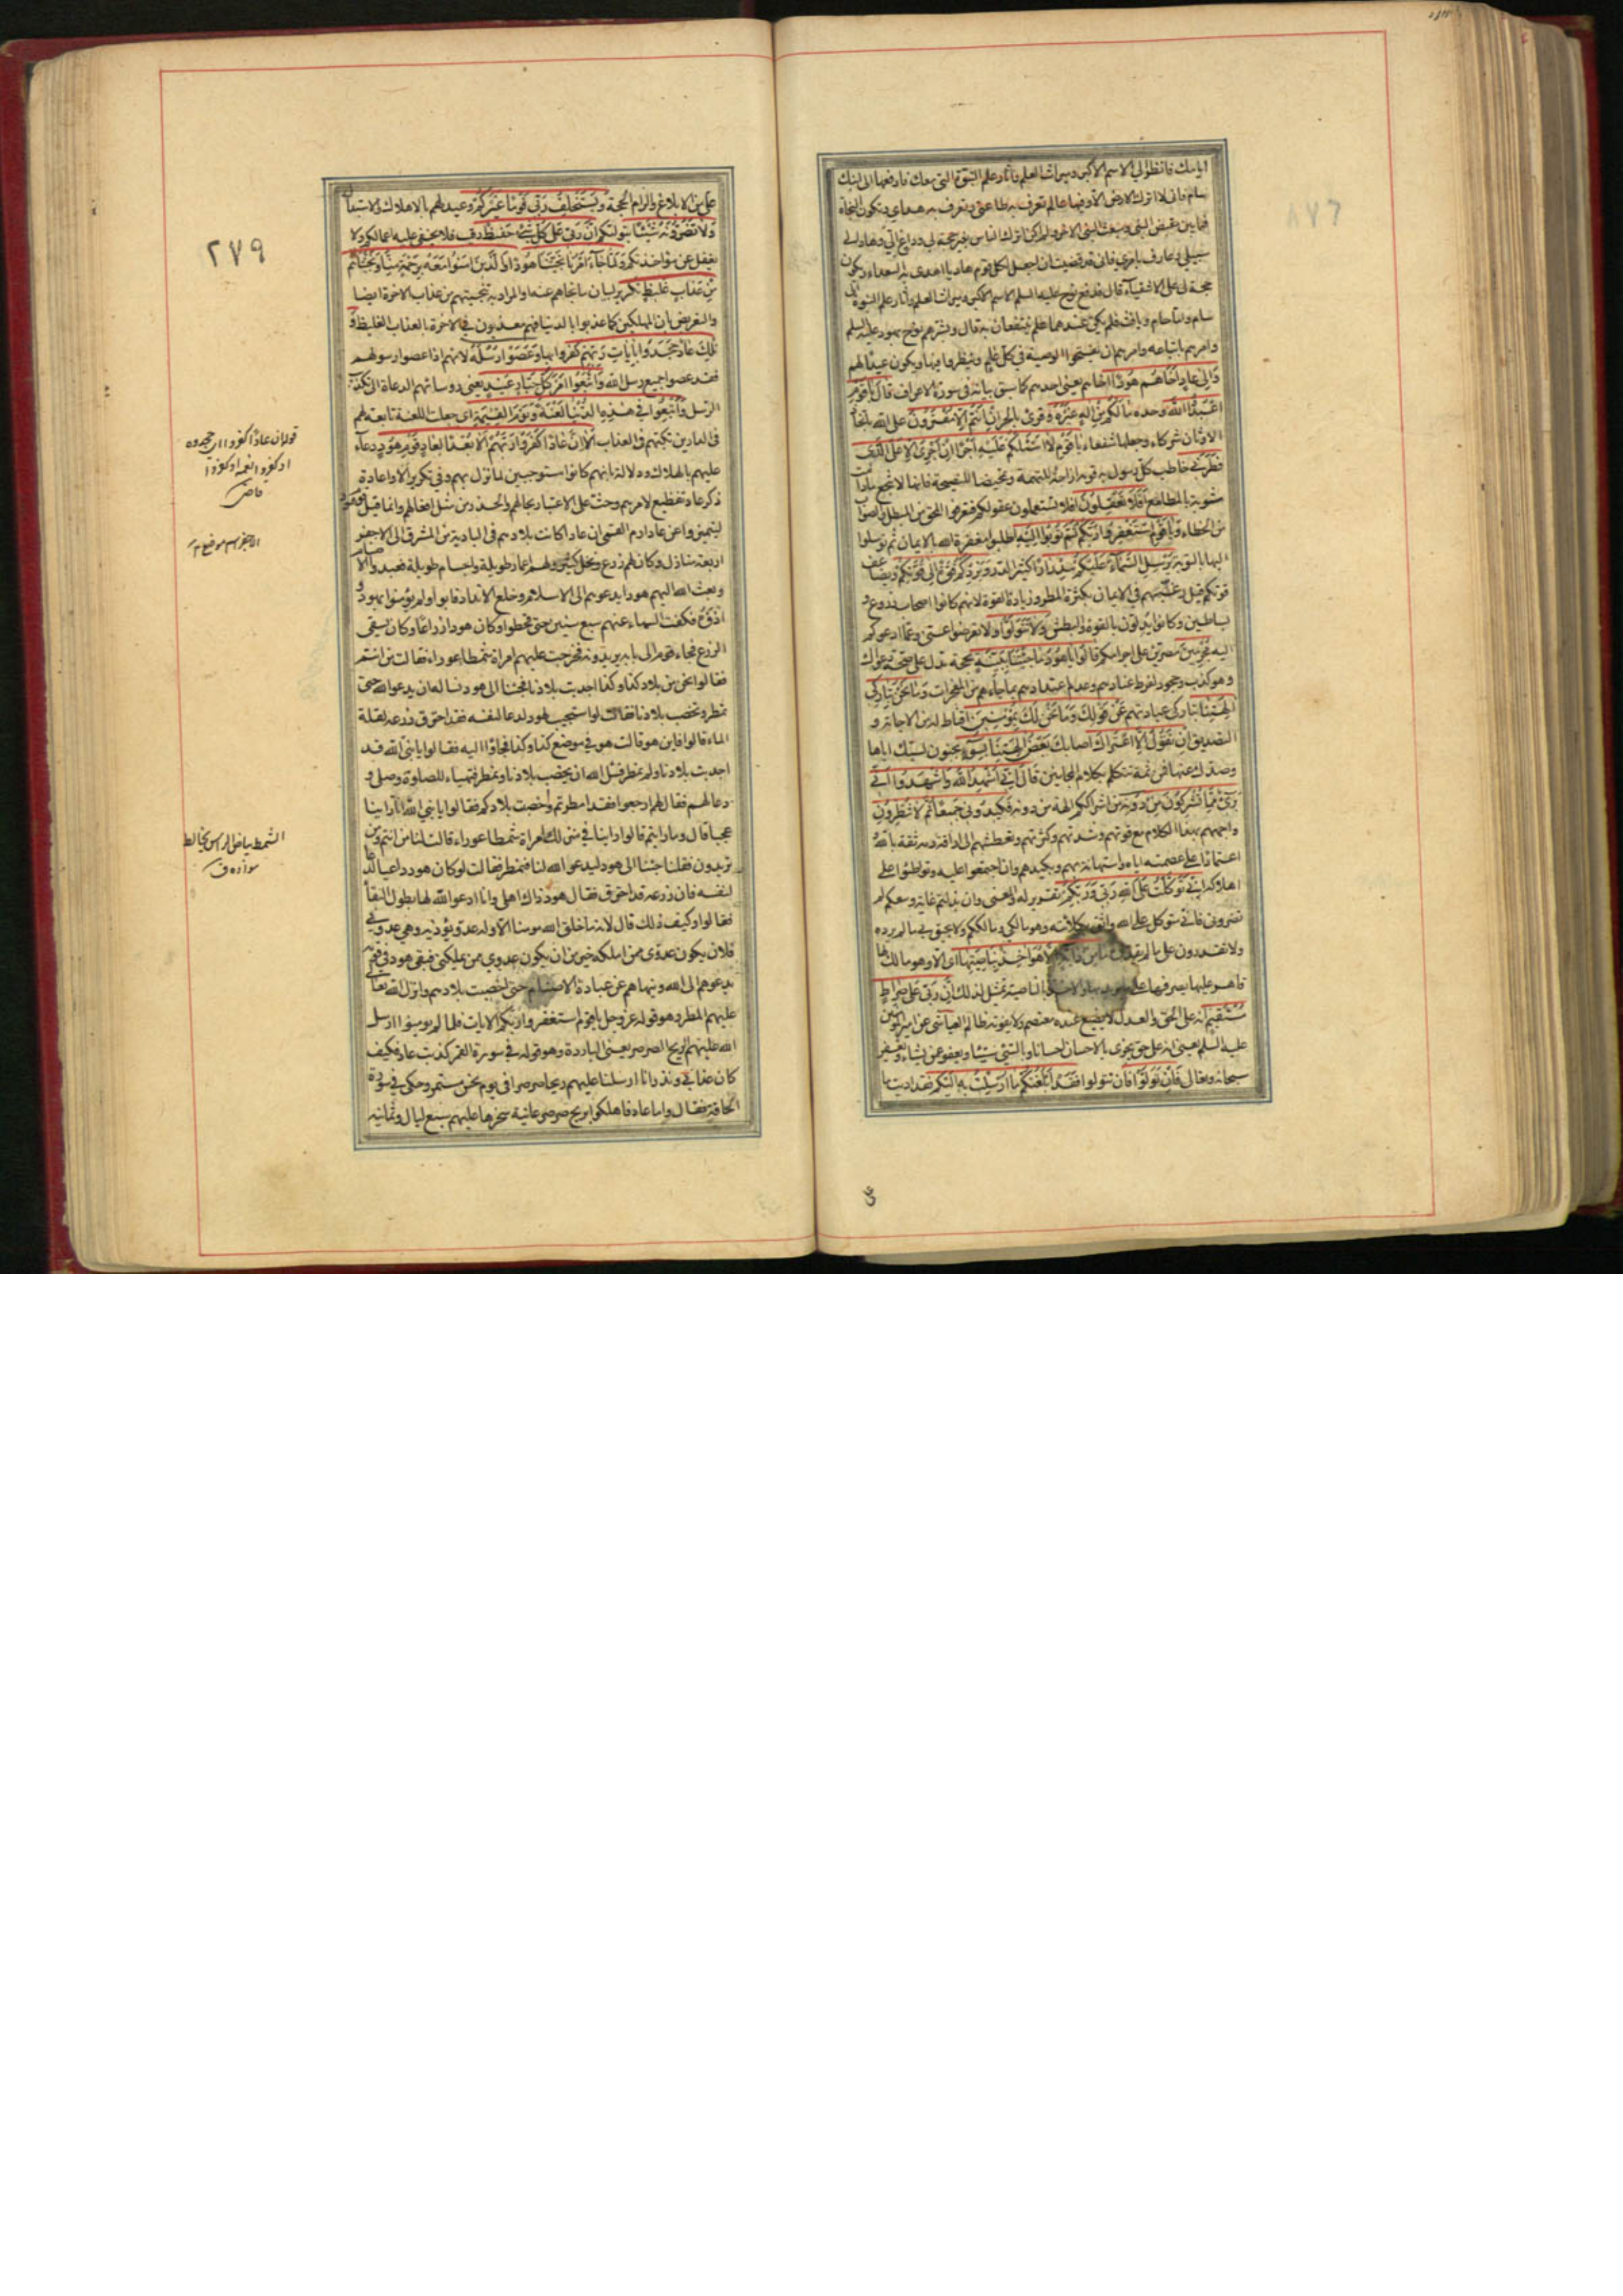 ايامك فانظر الى الاسم الاكبر وميراث العلم واثار علم النبوة التي معك فادفعها الى ابنك
سام فاني لا اترك الارض الا وفيها عالم تعرف به طاعتي ويعرف به هداي ويكون النجاة
فيما بين مقبض النبي ومبعث النبي الاخر ولم اكن اترك الناس بغير حجة لي وداع الي وهاد الى
سبيلي وعارف بامري فاني قد قضيت ان اجعل لكل قوم هاديا اهدي به السعداء ويكون
حجة لي على الاشقياء قال فدفع نوح عليه السلم الاسم الاكبر وميراث العلم واثار علم النبوة الى
سام واما حام ويافث فلم يكن عندهما علم ينتفعان به قال وبشرهم نوح بهود عليه السلم
وامرهم باتباعه وامرهم ان يفتحوا الوصية في كل عام وينظروا فيها ويكون عيدا لهم
وَاِلى عادٍ اَخاهُمْ هُودًا اخاهم يعني احدهم كما سبق بيانه في سورة الاعراف قال يا قَوْمِ
اعْبُدُوا اللهَ وحده ما لَكُمْ مِنْ اِلهٍ غَيْرُهُ وقرئ بالجر اِنْ اَنْتُمْ اِلّا مُفْتَرُونَ على الله باتخاذ
الاوثان شركاء وجعلها شفعاء يا قَوْمِ لا اَسْئَلُكُمْ عَلَيْهِ اَجْرًا اِنْ اَجْرِيَ اِلّا عَلَى الَّذي
فَطَرَني خاطب كل رسول به قومه ازاحة للتهمة وتمحيضا للنصيحة فانها لا تنجع ما دامت
مشوبة بالمطامع اَفَلا تَعْقِلُونَ افلا تستعملون عقولكم فتعرفوا المحق من المبطل والصواب
من الخطاء وَيا قَوْمِ اسْتَغْفِرُوا رَبَّكُمْ ثُمَّ تُوبُوا اِلَيْهِ اطلبوا مغفرة الله بالايمان ثم توسلوا
اليها بالتوبة يُرْسِلِ السَّماءَ عَلَيْكُمْ مِدْرارًا كثير الدر وَيَزِدْكُمْ قُوَّةً اِلى قُوَّتِكُمْ ويضاعف
قوتكم قيل رغبتهم في الايمان بكثرة المطر وزيادة القوة لانهم كانوا اصحاب زروع و
بساطين وكانوا يدلون بالقوة والبطش وَلا تَتَوَلَّوْا ولا تعرضوا عني وعما ادعوكم
اليه مُجْرِمينَ مصرين على اجرامكم قالُوا يا هُودُ ما جِئْتَنا بِبَيِّنَةٍ بحجة تدل على صحة دعواك
وهو كذب وجحود لفرط عنادهم وعدم اعتدادهم بما جاءهم من المعجزات وَما نَحْنُ بِتارِكي
الِهَتِنا بتاركي عبادتهم عَنْ قَوْلِكَ وَما نَحْنُ لَكَ بِمُؤْمِنينَ اقناط له من الاجابة و
التصديق اِنْ نَقُولُ اِلَّا اعْتَراكَ اصابك بَعْضُ الِهَتِنا بِسُوءٍ بجنون لسبك اياها
وصدك عنها فمن ثمة تتكلم بكلام المجانين قالَ اِنّي اُشْهِدُ اللهَ وَاشْهَدُوا اَنّي
بَريءٌ مِمّا تُشْرِكُونَ مِنْ دُونِهِ من اشراككم الهة من دونه فَكيدُوني جَميعًا ثُمَّ لا تُنْظِرُونِ
واجههم بهذا الكلام مع قوتهم وشدتهم وكثرتهم وتعطشهم الى اراقة دمه ثقة بالله و
اعتمادا على عصمته اياه واستهانة بهم وبكيدهم وان اجتمعوا عليه وتواطئوا على
اهلاكه اِنّي تَوَكَّلْتُ عَلَى اللهِ رَبّي وَرَبِّكُمْ تقرير له والمعنى وان بذلتم غاية وسعكم لم
تضروني فاني متوكل على الله واثق بكلائته وهو مالكي ومالككم ولا يحيق بي ما لم يرده
ولا تقدرون على ما لم يقدره ما مِنْ دابَّةٍ اِلّا هُوَ اخِذٌ بِناصِيَتِها اي الا وهو مالك لها
قاهر عليها يصرفها على ما يريد بها والاخذ بالناصية تمثيل لذلك اِنَّ رَبّي عَلى صِراطٍ
مُسْتَقيمٍ انه على الحق والعدل لا يضيع عنده معتصم ولا يفوته ظالم العياشي عن امير المؤمنين
عليه السلم يعني انه على حق يجزي بالاحسان احسانا وبالسيئ سيئا ويعفو عمن يشاء ويغفر
سبحانه وتعالى فَاِنْ تَوَلَّوْا فان تتولوا فَقَدْ اَبْلَغْتُكُمْ ما اُرْسِلْتُ بِهِ اِلَيْكُمْ فقد اديت ما
علي من الابلاغ والزام الحجة وَيَسْتَخْلِفُ رَبّي قَوْمًا غَيْرَكُمْ وعيد لهم بالاهلاك والاستبدال
وَلا تَضُرُّونَهُ شَيْئًا بتوليكم اِنَّ رَبّي عَلى كُلِّ شَيْءٍ حَفيظٌ رقيب فلا يخفى عليه اعمالكم ولا
يغفل عن مؤاخذتكم وَلَمّا جاءَ اَمْرُنا نَجَّيْنا هُودًا وَالَّذينَ امَنُوا مَعَهُ بِرَحْمَةٍ مِنّا وَنَجَّيْناهُمْ
مِنْ عَذابٍ غَليظٍ تكرير لبيان ما نجاهم عنه او المراد به تنجيتهم من عذاب الاخرة ايضا
والتعريض بان المهلكين كما عذبوا بالدنيا فهم معذبون في الاخرة بالعذاب الغليظ وَ
تِلْكَ عادٌ جَحَدُوا بِاياتِ رَبِّهِمْ كفروا بها وَعَصَوْا رُسُلَهُ لانهم اذا عصوا رسولهم
فقد عصوا جميع رسل الله وَاتَّبَعُوا اَمْرَ كُلِّ جَبّارٍ عَنيدٍ يعني رؤسائهم الدعاة الى تكذيب
الرسل وَاُتْبِعُوا في هذِهِ الدُّنْيا لَعْنَةً وَيَوْمَ الْقِيمَةِ اي جعلت اللعنة تابعة لهم
في الدارين تكبتهم في العذاب اَلا اِنَّ عادًا كَفَرُوا رَبَّهُمْ اَلا بُعْدًا لِعادٍ قَوْمِ هُودٍ دعاء
عليهم بالهلاك ودلالة بانهم كانوا مستوجبين لما نزل بهم وفي تكرير الا واعادة
ذكر عاد تفظيع لامرهم وحث على الاعتبار بحالهم والحذر من مثل افعالهم وانما قيل قوم هود
ليتميزوا عن عاد ارم القمي ان عادا كانت بلادهم في البادية من المشرق الى الاجفر
اربعة منازل وكان لهم زرع ونخل كثير ولهم اعمار طويلة واجسام طويلة فعبدوا الاصنام
وبعث الله اليهم هودا يدعوهم الى الاسلام وخلع الانداد فابوا ولم يؤمنوا بهود و
اذوه فكفت السماء عنهم سبع سنين حتى قحطوا وكان هود زراعا وكان يسقي
الزرع فجاء قوم الى بابه يريدونه فخرجت عليهم امراة شمطا عوراء فقالت من انتم
فقالوا نحن من بلاد كذا وكذا اجدبت بلادنا فجئنا الى هود نساله ان يدعو الله حتى
تمطر وتخصب بلادنا فقالت لو استجيب لهود لدعا لنفسه فقد احترق زرعه لقلة
الماء قالوا فاين هو قالت هو في موضع كذا وكذا فجاؤا اليه فقالوا يا نبي الله قد
اجدبت بلادنا ولم نمطر فسل الله ان يخصب بلادنا ونمطر فتهياء للصلوة وصلى و
دعا لهم فقال لهم ارجعوا فقد امطرتم واخصبت بلادكم فقالوا يا نبي الله انا راينا
عجبا قال وما رايتم قالوا راينا في منزلك امراة شمطا عوراء قالت لنا من انتم ومن
تريدون فقلنا جئنا الى هود ليدعو الله لنا فنمطر فقالت لو كان هود داعيا لدعا
لنفسه فان زرعه قد احترق فقال هود ذاك اهلي وانا ادعو الله لها بطول البقاء
فقالوا وكيف ذلك قال لانه ما خلق الله مؤمنا الا وله عدو يؤذيه وهي عدوي
فلان يكون عدوي ممن املكه خير من ان يكون عدوي ممن يملكني فبقي هود في قومه
يدعوهم الى الله وينهاهم عن عبادة الاصنام حتى اخصبت بلادهم وانزل الله تعالى
عليهم المطر وهو قوله عز وجل يا قوم استغفروا ربكم الايات فلما لم يؤمنوا ارسل
الله عليهم الريح الصرصر يعني الباردة وهو قوله في سورة القمر كذبت عاد فكيف
كان عذابي ونذر انا ارسلنا عليهم ريحا صرصرا في يوم نحس مستمر وحكى في سورة
الحاقة فقال واما عاد فاهلكوا بريح صرصر عاتية سخرها عليهم سبع ليال وثمانية
٢٧٩
قوله ان عادا كفروا اي جحدوه
او كفروا نعمه او كفروا
قاضي
الاجفر اسم موضع
الشمط بياض الراس يخالط
سواده ق